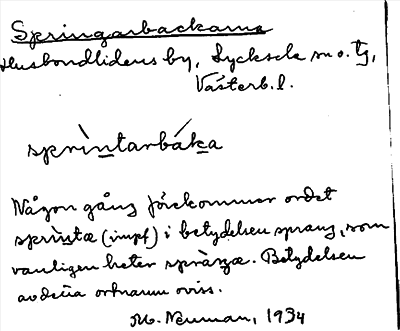 Springarbackarna
Husbondlidens by, Lycksele sn o. tg,
Västerb. l.
sprìntarbáka
Någon gång förekommer ordet
sprìntæ (impf) i betydelsen sprang, som
vanligen heter spràŋæ. Betydelsen
av detta ortnamn oviss.
M. Neuman, 1934